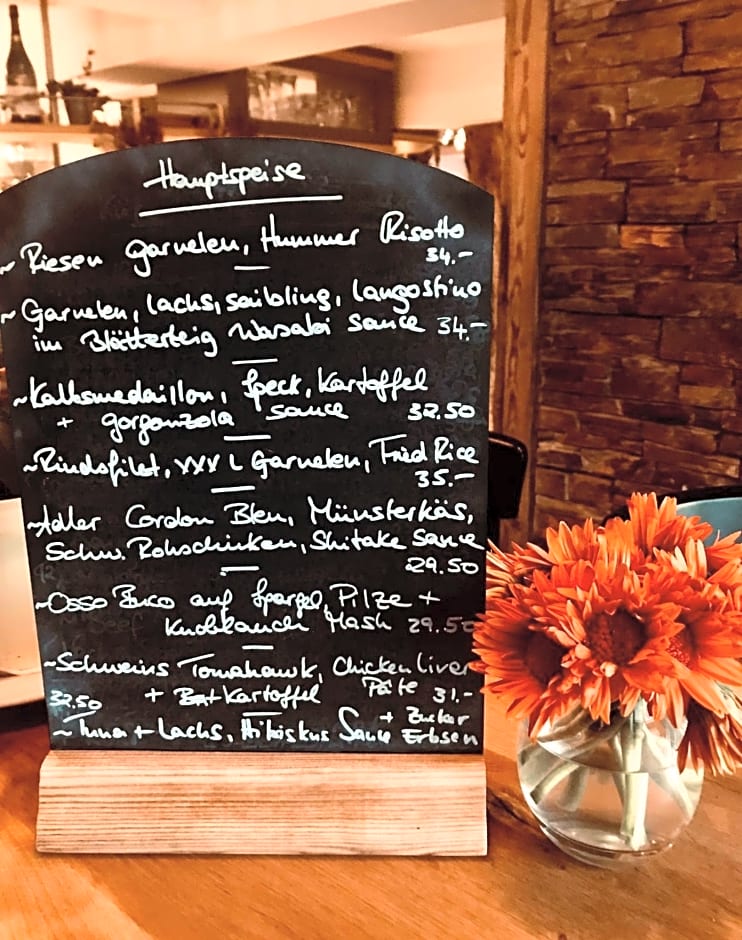 Hauptspeise
~ Riesen Garnelen, Hummer Risotto
34.-
~ Garnelen, Lachs, Saibling, Langostino
im Blätterteig Wasabi Sauce 34.-
~ Kalbsmedaillon, Speck, Kartoffel
+ Gorgonzola Sauce 32.50
~ Rindsfilet, XXXL Garnelen, Fried Rice
35.-
~ Adler Cordon Bleu, Münsterkäs,
Schw. Rohschinken, Shitake Sauce
29.50
~ Osso Buco auf Spargel, Pilze +
Knoblauch Mash 29.50
~ Schweins Tomahawk, Chicken Liver
+ Kartoffel Pâte 31.-
32.50
~ Tuna + Lachs, Hibiskus Sauce + Zucker
Erbsen